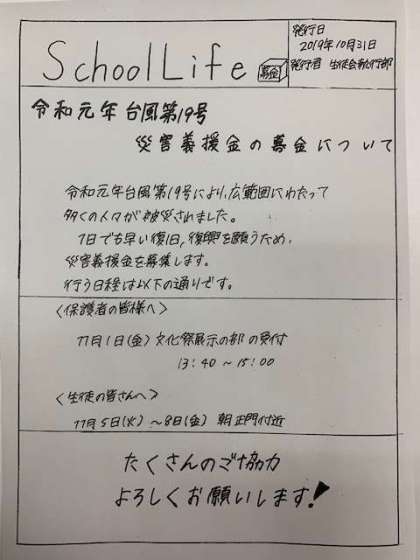 School Life
募金
発行日
2019年10月31日
発行者 生徒会執行部
令和元年台風第19号
災害義援金の募金について
令和元年台風第19号により、広範囲にわたって
多くの人々が被災されました。
1日でも早い復旧、復興を願うため、
災害義援金を募集します。
行う日程は以下の通りです。
〈保護者の皆様へ〉
11月1日(金) 文化祭展示の部の受付
13:40 ~ 15:00
〈生徒の皆さんへ〉
11月5日(火) ~8日(金) 朝正門付近
たくさんのご協力
よろしくお願いします!